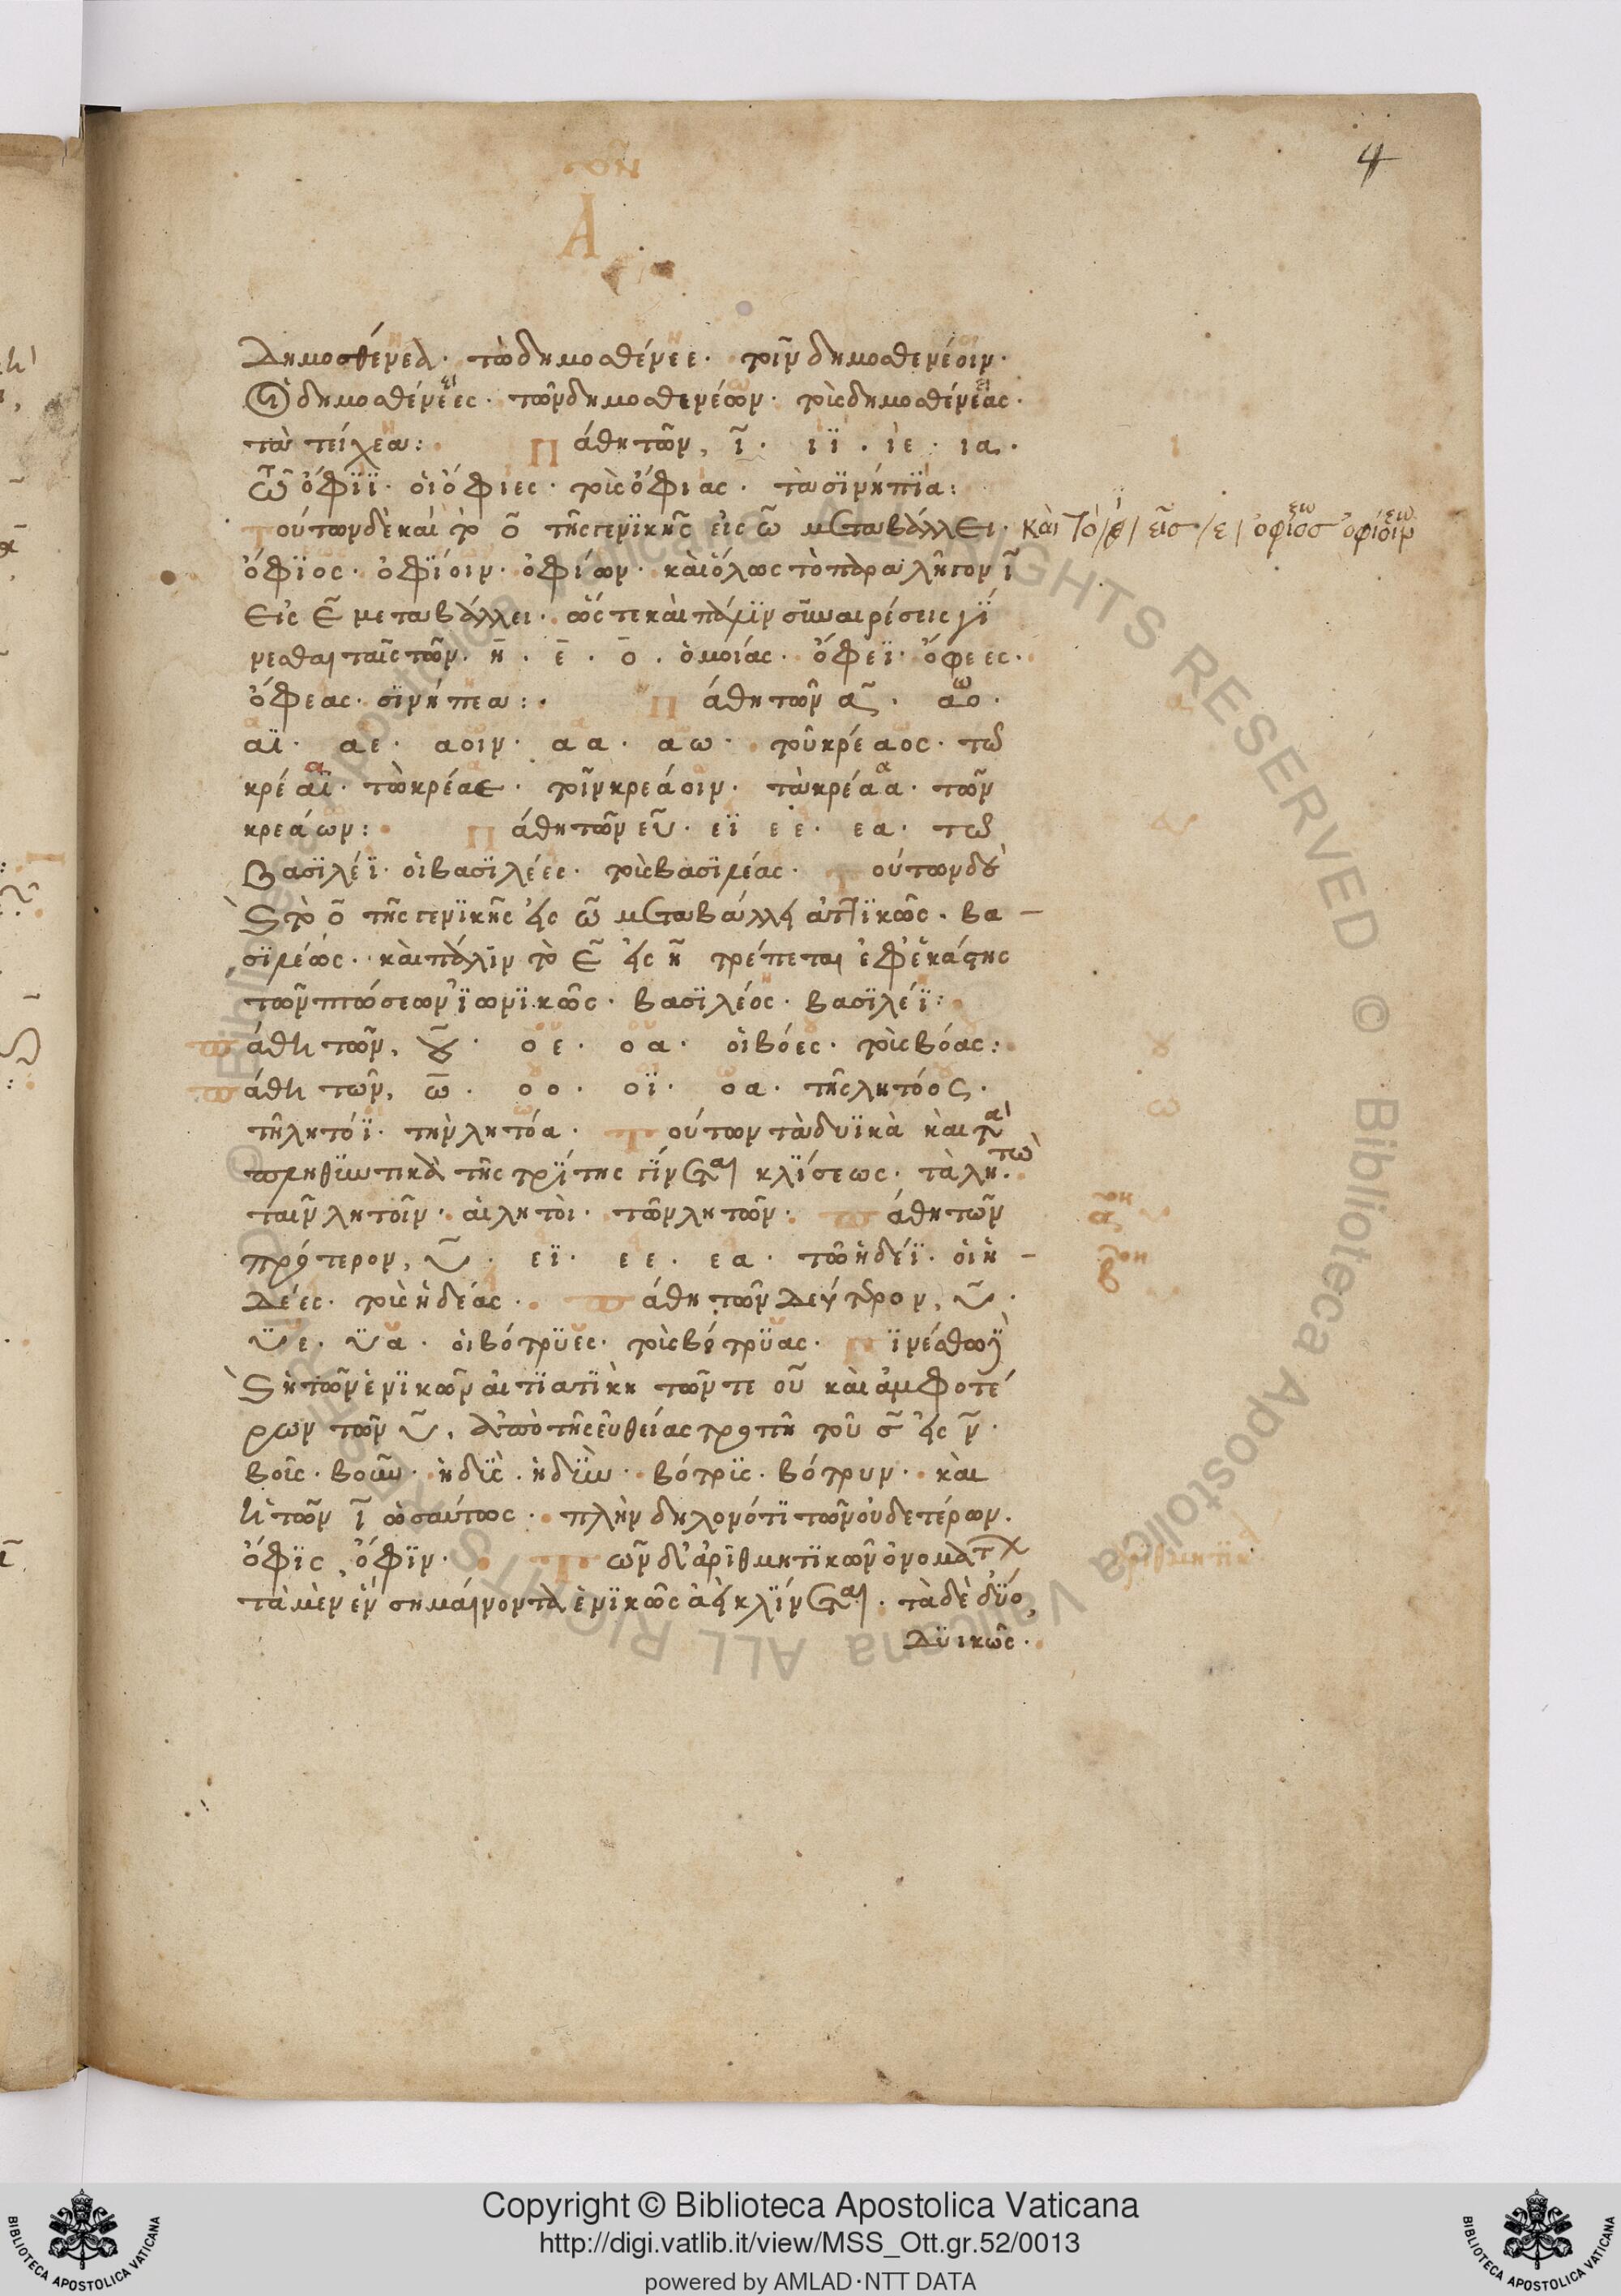 4
Α
Δημοσθένεα· τὼ δημοσθένεε· τοῖν δημοσθενέοιν·
οἱ δημοσθένεες· τῶν δημοσθενέων· τοὺς δημοσθένεας·
τὰ τείχεα:· Πάθη τῶν, ῑ· ιϊ· ιε· ια·
τῶ ὄφϊϊ· οἱ ὄφιες· τοὺς ὄφιας· τὰ σϊνήπϊα:
τούτων δὲ καὶ τὸ ο̄ τῆς γενϊκῆς εἰς ω̄ μεταβάλλει· καὶ τὸ
ὄφϊος· ὀφΐοιν· ὀφίων· καὶ ὅλως τὸ παραλῆγον ῑ
εἰς ε̄ μεταβάλλει· ὥστε καὶ πάλϊν συναιρέσεις γί
νεσθαι ταῖς τῶν· η̄· ε̄· ο̄· ὁμοίας· ὄφεϊ· ὄφεες·
ὄφεας· σϊνήπεα:· Πάθη τῶν ᾱ· αο·
αϊ· αε· αοιν· αα· αω· τοῦ κρέαος· τῶ
κρέαϊ· τὼ κρέαε· τοῖν κρεάοιν· τὰ κρέαα· τῶν
κρεάων:· Πάθη τῶν εῡ· εϊ εε· εα· τῶ
Βασϊλέϊ· οἱ βασϊλέες· τοὺς βασϊλέας· τούτων δὲ
ϛ τὸ ο̄ τῆς γενϊκῆς εἰς ω̄ μεταβάλλει ἀττϊκῶς· βα –
σϊλέως· καὶ πάλϊν τὸ ε̄ εἰς η̄ τρέπεται ἐφ' ἑκάστης
τῶν πτώσεων ἰωνϊκῶς· βασϊλέος· βασϊλέϊ:
πάθη τῶν, οῡ· οε· οα· οἱ βόες· τοὺς βόας:
πάθη τῶν, ω̄· οο· οϊ· οα· τῆς λητόος·
τῆ λητόϊ· τὴν λητόα· τούτων τὰ δυϊκὰ καὶ τὰ
πληθυντικὰ τῆς τρίτης γίνεται κλΐσεως· τὰ λητὼ·
ταῖν λητοῖν· αἱ λητοὶ· τῶν λητῶν· πάθη τῶν
πρότερον, ῡ· εϊ· εε· εα· τῶ ἡδέϊ· οἱ ἡ –
δέες· τοὺς ἡδέας· πάθη τῶν δεύτερον, ῡ·
ϋε· ϋα· οἱ βότρϋες· τοὺς βότρϋας· γϊνέσθω
ϛ ἡ τῶν ἑνϊκῶν αἰτϊατϊκὴ τῶν τε οῡ καὶ ἀμφοτέ
ρων τῶν ῡ, ἀπὸ τῆς εὐθείας τροπῆ τοῦ σ̄ εἰς ν̄·
βοῦς· βοῦν· ἡδὺς· ἡδὺν· βότρϋς· βότρυν· καὶ
ἡ τῶν ῑ ὡσαύτως· πλὴν δηλονότι τῶν οὐδετέρων·
ὄφϊς, ὄφϊν· Τῶν δ' ἀρϊθμητϊκῶν ὀνομάτων
τὰ μὲν ἓν σημαίνοντα ἑνϊκῶς ἀεὶ κλΐνεται· τὰ δὲ δύο,
Δϋικῶς·
Copyright © Biblioteca Apostolica Vaticana
http://digi.vatlib.it/view/MSS_Ott.gr.52/0013
powered by AMLAD·NTT DATA